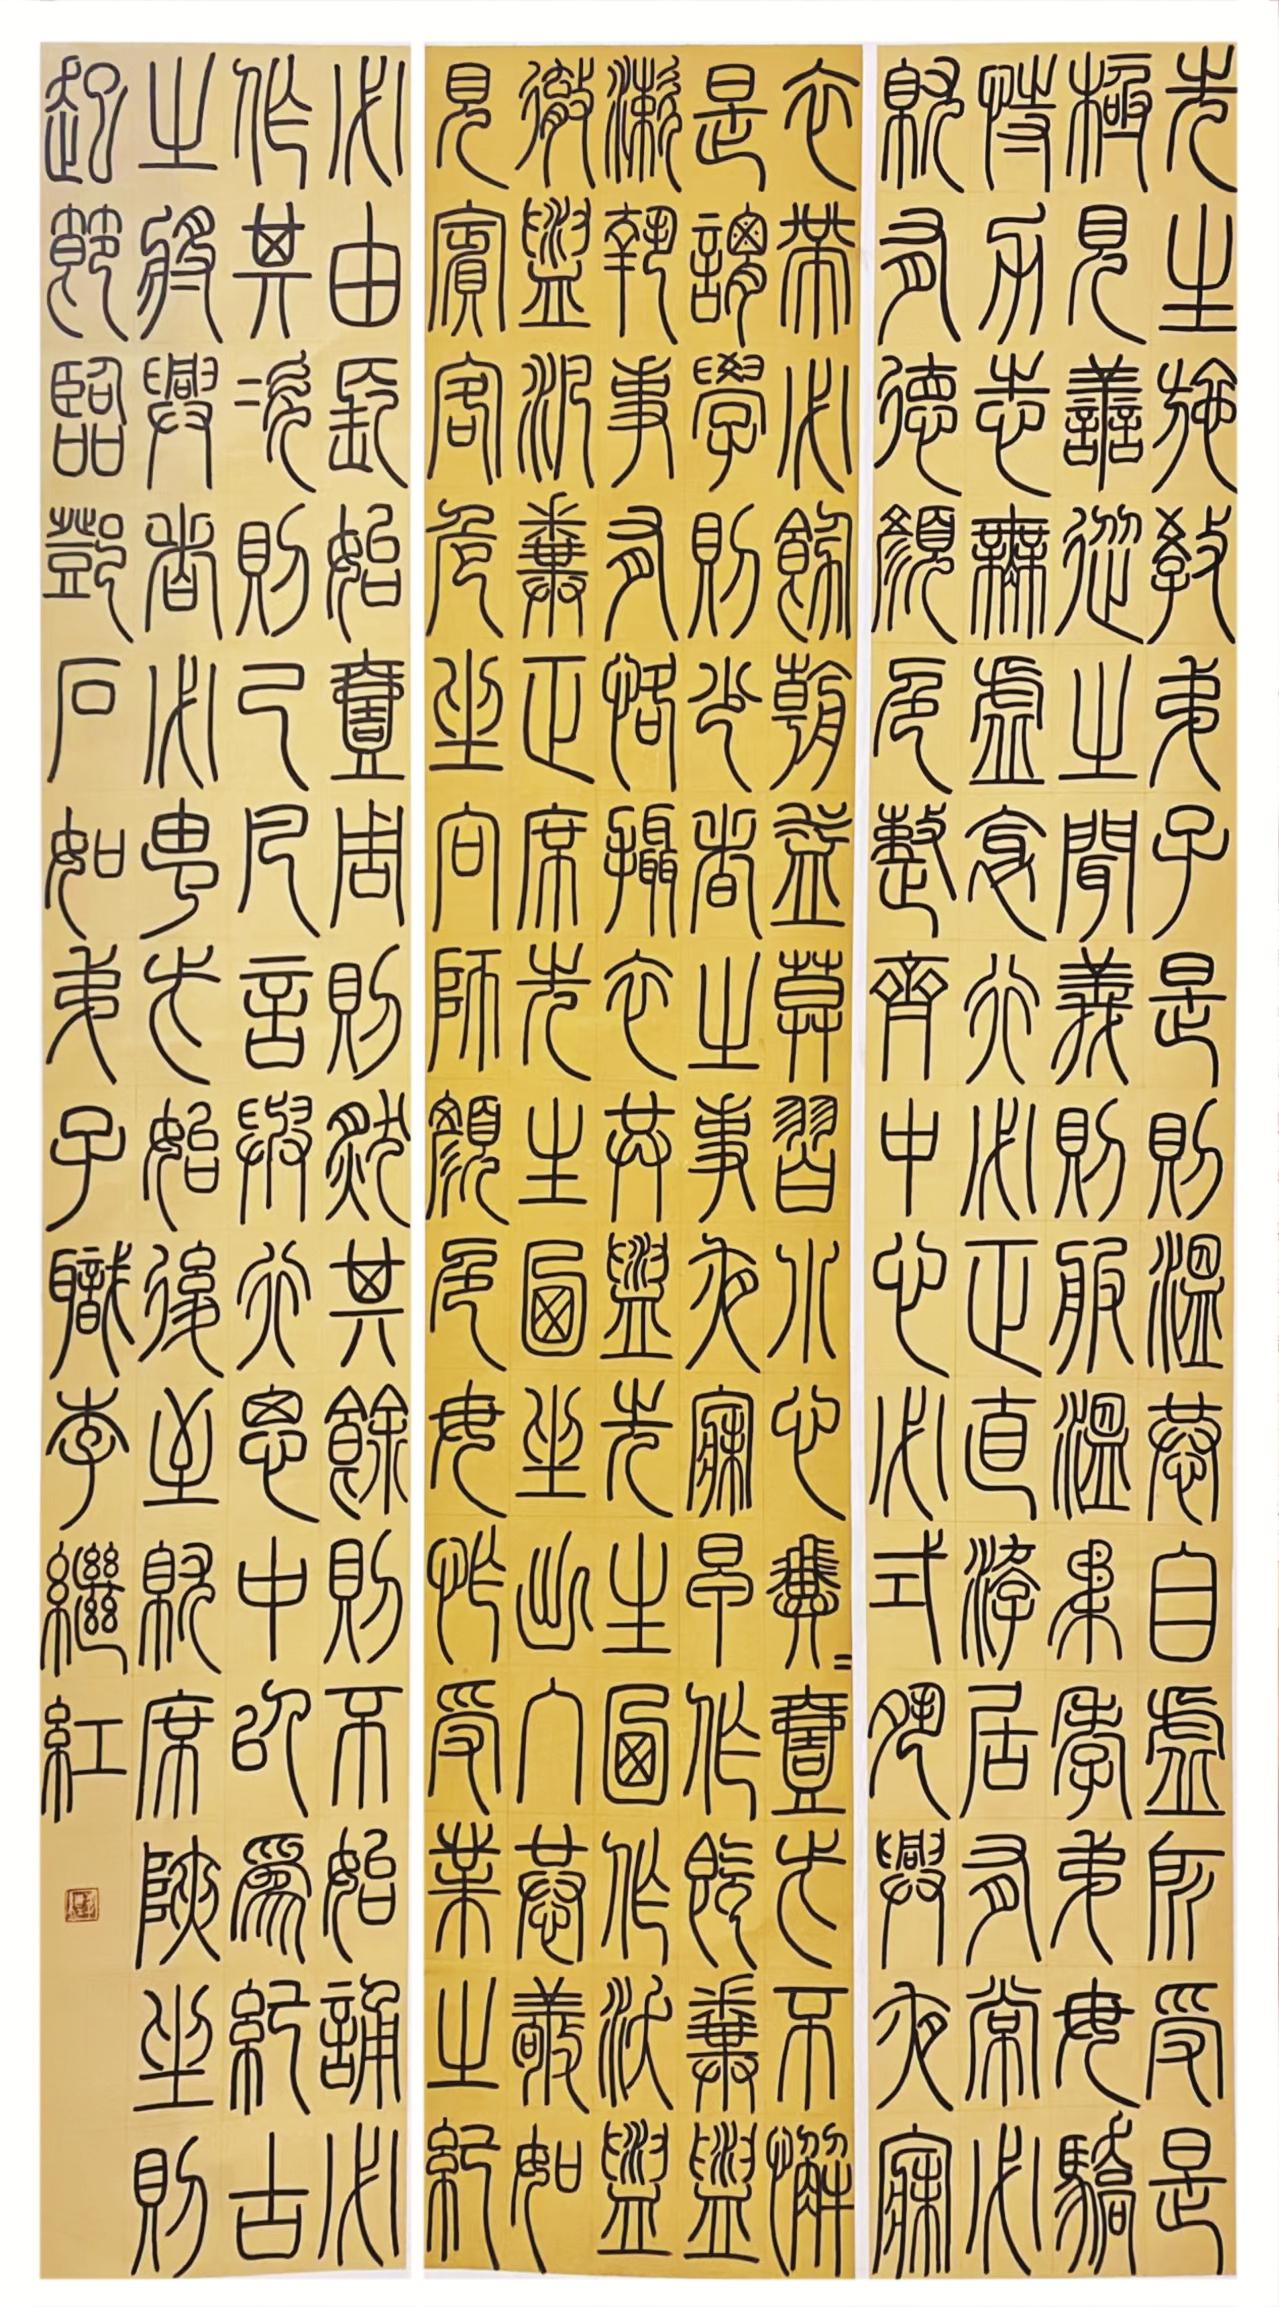 先生施教弟子是則溫恭自虛所受是
極見善從之聞義則服溫柔孝弟毋驕
恃力志無虛邪行必正直游居有常必
就有德顏色整齊中心必式夙興夜寐
衣帶必飾朝益莫習小心翼=壹此不懈
是謂學則少者之事夜寐早作既糞盥
漱執事有恪攝衣共盥先生卥作沃盥
徹盥汎糞正席先生卥坐出入恭敬如
見賓客危坐向師顏色毋怍受業之紀
必由長始壹周則然其餘則不始誦必
作其次則已凡言與行思中以為紀古
之將興者必由此始後至就席陜坐則
起節臨鄧石如弟子職李繼紅